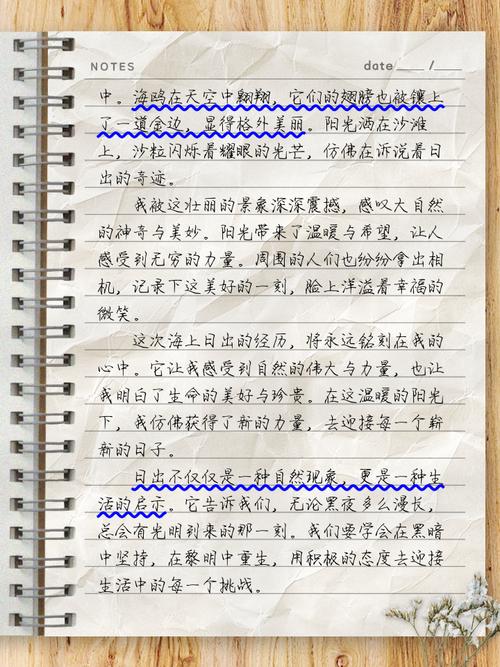 NOTES date ____ / ____
中。海鸥在天空中翱翔，它们的翅膀也被镶上
了一道金边，显得格外美丽。阳光洒在沙滩
上，沙粒闪烁着耀眼的光芒，仿佛在诉说着日
出的奇迹。
我被这壮丽的景象深深震撼，感叹大自然
的神奇与美妙。阳光带来了温暖与希望，让人
感受到无穷的力量。周围的人们也纷纷拿出相
机，记录下这美好的一刻，脸上洋溢着幸福的
微笑。
这次海上日出的经历，将永远铭刻在我的
心中。它让我感受到自然的伟大与力量，也让
我明白了生命的美好与珍贵。在这温暖的阳光
下，我仿佛获得了新的力量，去迎接每一个崭
新的日子。
日出不仅仅是一种自然现象，更是一种生
活的启示。它告诉我们，无论黑夜多么漫长，
总会有光明到来的那一刻。我们要学会在黑暗
中坚持，在黎明中重生，用积极的态度去迎接
生活中的每一个挑战。